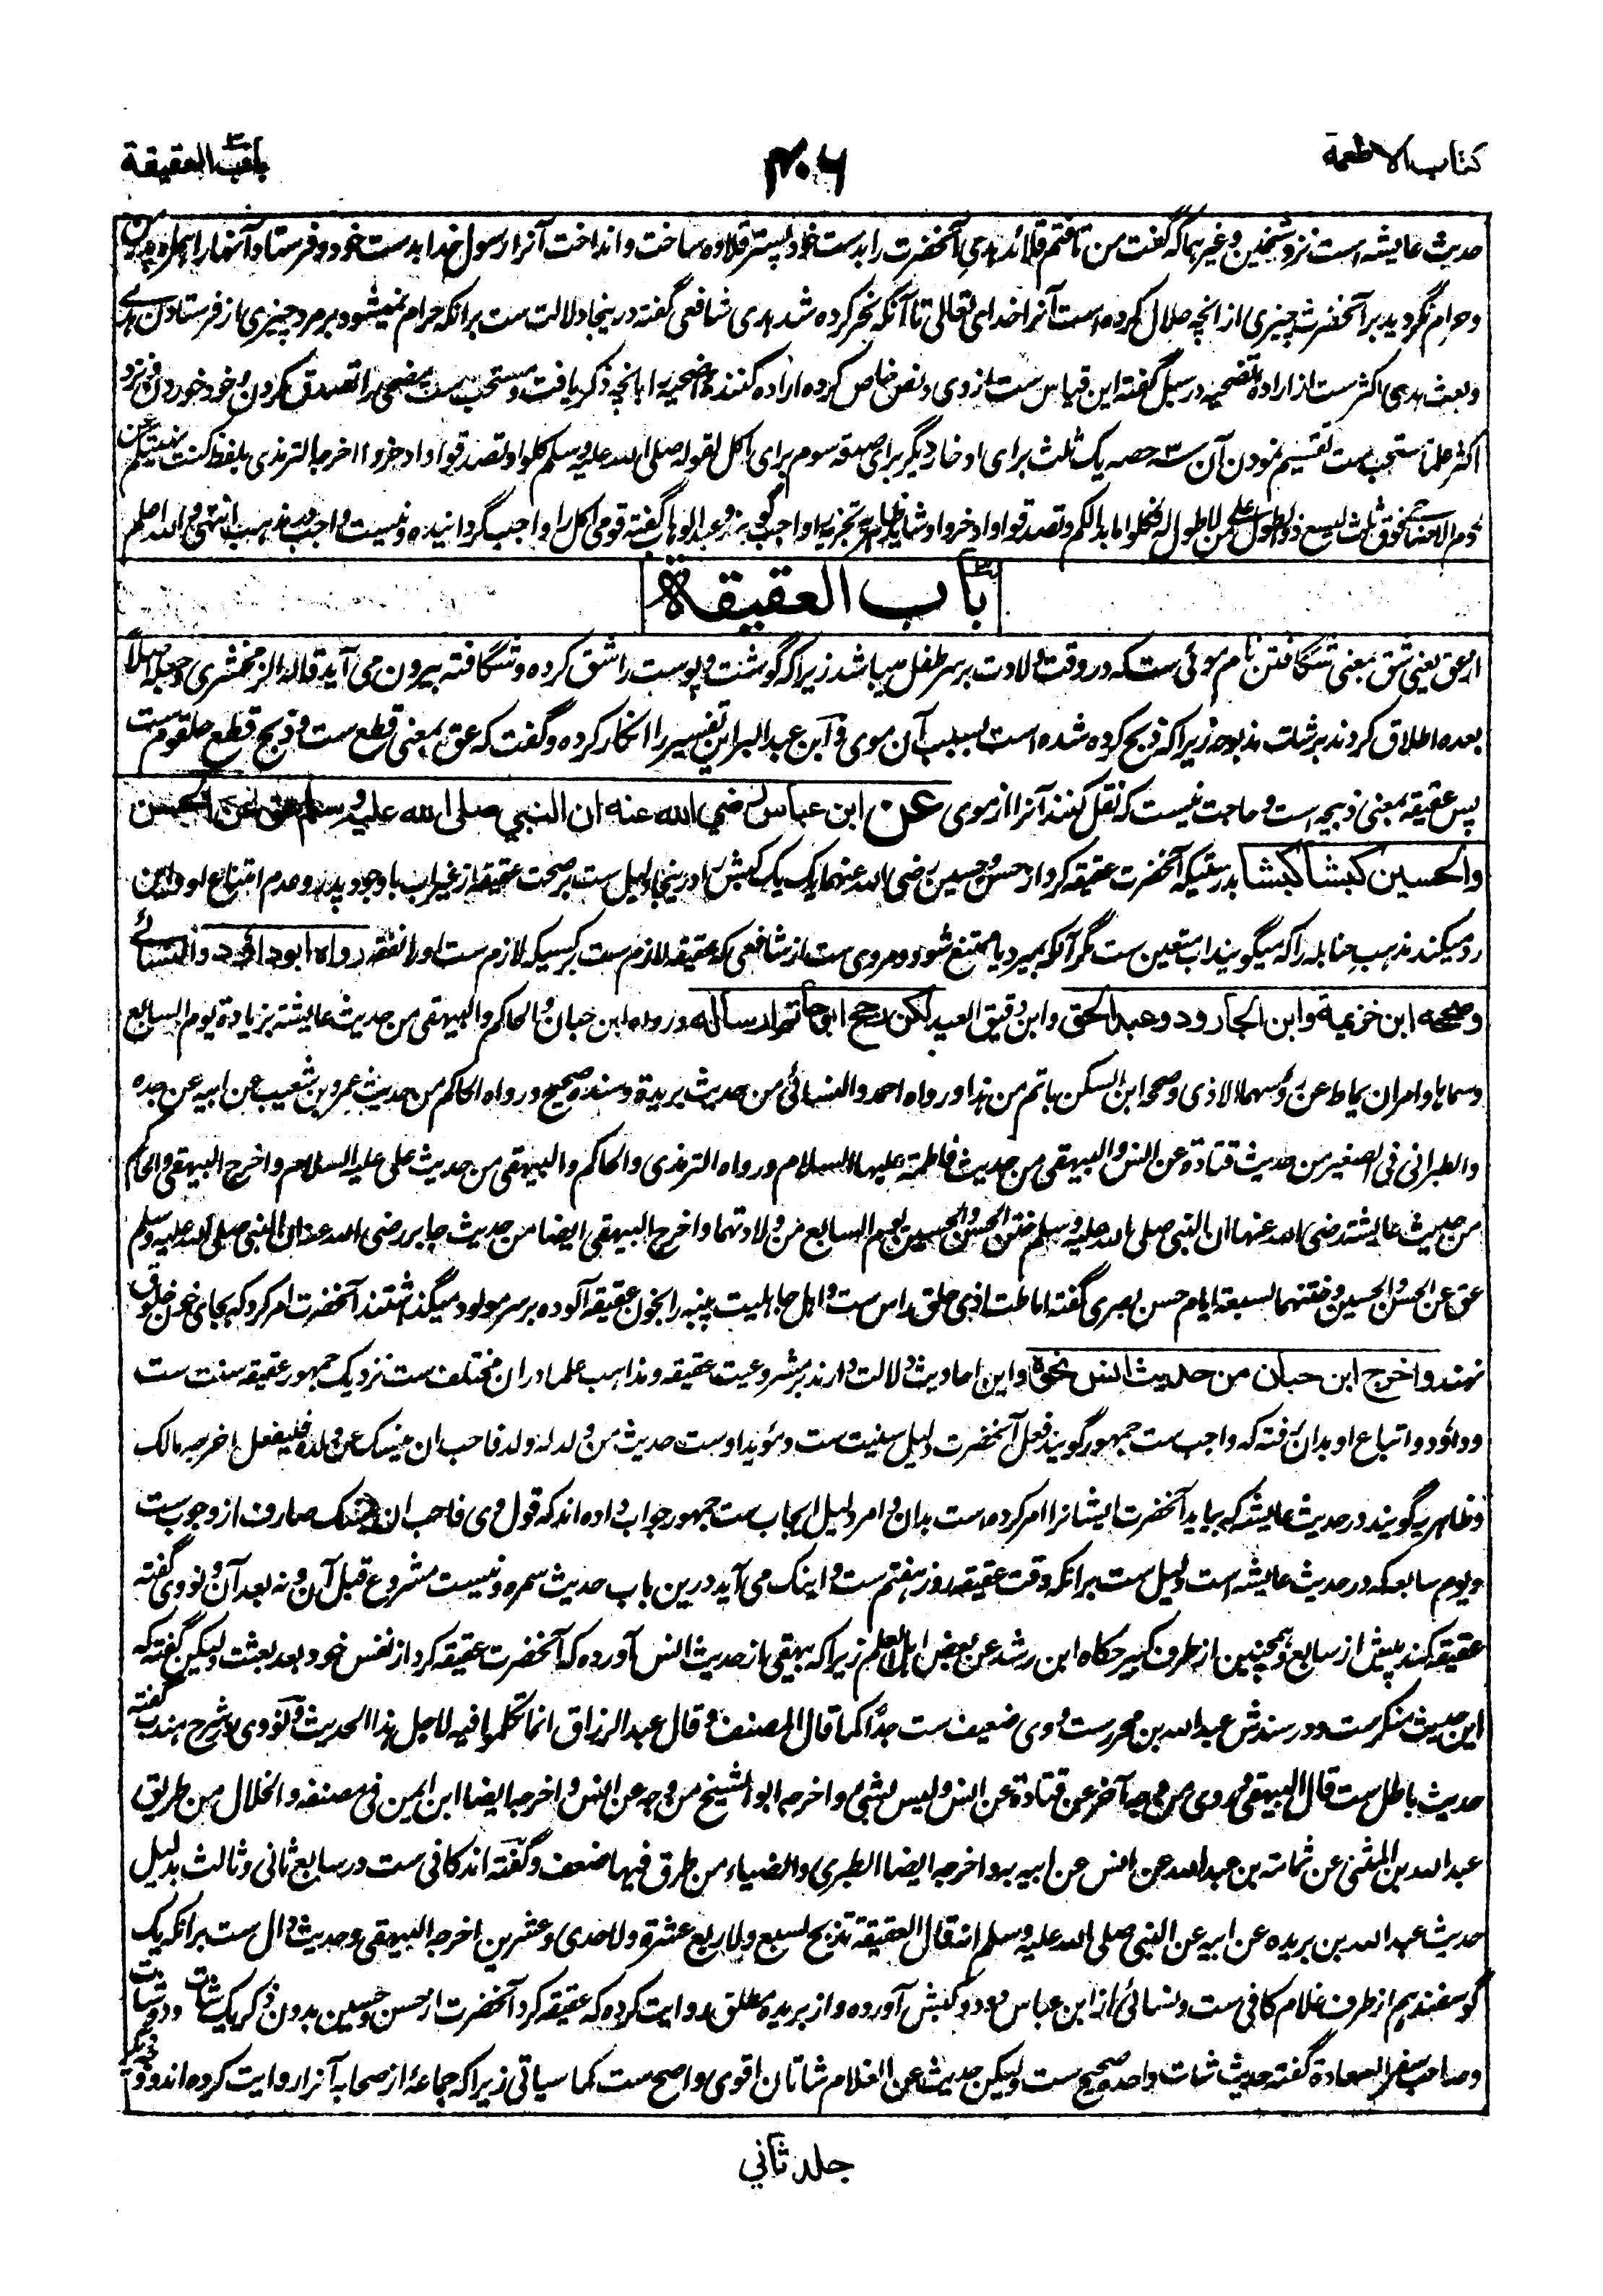 کتاب الاطعمة
۴۰۶
باب العقیقة
حدیث عایشه است نزد شیخین و غیرهما که گفت من تافتم قلائد هدی آنحضرت را بدست خود پستر قلاوه ساخت و انداخت آنرا رسول خدا بدست خود و فرستاد آنها را همراه پدر من
و حرام نگردید بر آنحضرت چیزی از انچه حلال کرده است آنرا خدای تعالی تا آنکه نحر کرده شد هدی شافعی گفته درینجا دلالت ست برانکه حرام نمیشود بر مرد چیزی از فرستادن هدی
و بعث هدی اکثر ست از اراده تضحیه در سبل گفته این قیاس ست از وی و نص خاص کرده اراده کننده اضحیه را بانچه ذکر یافت و مستحب ست مضحی را تصدق کردن و خود خوردن و نزد
اکثر علما مستحب ست تقسیم نمودن آن سه حصه یک ثلث برای ادخار دیگر برای صدقه سوم برای اکل لقوله صلی الله علیه وسلم کلوا و تصدقوا و ادخروا اخرجه الترمذی بلفظ کنت نهیتکم عن
لحوم الاضاحی فوق ثلث لیتسع ذو الطول علی من لا طول له فکلوا ما بدا لکم و تصدقوا و ادخروا و شاید ظاهریه تجزیه را واجب گویند و عبدالوهاب گفته قومی اکل را واجب گردانیده و نیست واجب در مذهب انتهی والله اعلم
باب العقیقة
از عق یعنی شق بمعنی شگافتن نام موئی ست که در وقت ولادت بر سر طفل میباشد زیرا که گوشت و پوست را شق کرده و شگافته بیرون می آید قاله الزمخشری و جعله اصلا
بعده اطلاق کردند بر شات مذبوحه زیرا که ذبح کرده شده است بسبب آن موی و ابن عبدالبر این تفسیر را انکار کرده و گفت که عق بمعنی قطع ست و ذبح قطع حلقوم ست
پس عقیقه بمعنی ذبیحه است و حاجت نیست که نقل کنند آنرا از موی عن ابن عباس رضي الله عنه ان النبي صلی الله علیه وسلم عق عن الحسن
والحسین کبشا کبشا بدرستیکه آنحضرت عقیقه کرد از حسن و حسین رضی الله عنهما یک یک کبش را درینجا دلیل ست بر صحت عقیقه از غیر اب با وجود پدر و عدم امتناع او و این
رد میکند مذهب حنابله را که میگویند اب متعین ست مگر آنکه بمیرد یا ممتنع شود و مروی ست از شافعی که عقیقه لازم ست بر کسیکه لازم ست او را نفقه رواه ابو داؤد والنسائے
وصححه ابن خزیمة وابن الجارود وعبد الحق وابن دقیق العید لکن رجح ابو حاتم ارساله ورواه ابن حبان والحاکم والبیهقی من حدیث عایشة بزیادة یوم السابع
وسماها وامر ان یماط عن رؤسهما الاذی وصححه ابن السکن باتم من هذا ورواه احمد والنسائی من حدیث بریدة وسنده صحیح ورواه الحاکم من حدیث عمرو بن شعیب عن ابیه عن جده
والطبرانی فی الصغیر من حدیث قتادة عن انس والبیهقی من حدیث فاطمة علیها السلام ورواه الترمذی والحاکم والبیهقی من حدیث علی علیه السلام واخرج البیهقی والحاکم
من حدیث عایشة رضی الله عنها ان النبی صلی الله علیه وسلم ختن الحسن والحسین یوم السابع من ولادتهما واخرج البیهقی ایضا من حدیث جابر رضی الله عنه ان النبی صلی الله علیه وسلم
عق عن الحسن والحسین وختنهما لسبعة ایام حسن بصری گفته اماطت اذی حلق راس ست و اهل جاهلیت پنبه را بخون عقیقه آلوده بر سر مولود میگذاشتند آنحضرت امر کرد که بجای خون خلوق
نهند واخرج ابن حبان من حدیث انس نحوه و این احادیث دلالت دارند بر مشروعیت عقیقه و مذاهب علما در ان مختلف ست نزدیک جمهور عقیقه سنت ست
و داؤد و اتباع او بدان رفته که واجب ست جمهور گویند فعل آنحضرت دلیل سنیت ست و مؤید اوست حدیث من ولد له ولد فاحب ان ینسک عن ولده فلیفعل اخرجه مالک
و ظاهریه گویند در حدیث عایشه که بیاید آنحضرت ایشانرا امر کرده ست بدان و امر دلیل ایجاب ست جمهور جواب داده اند که قول وی فاحب ان ینسک صارف از وجوب ست
و یوم سابعه که در حدیث عایشه است دلیل ست برانکه وقت عقیقه روز هفتم ست و اینک می آید درین باب حدیث سمره و نیست مشروع قبل آن و نه بعد آن و نووی گفته
عقیقه کند پیش از سابع و همچنین از طرف کبیر حکاه ابن رشد عن بعض اهل العلم زیرا که بیهقی از حدیث انس آورده که آنحضرت عقیقه کرد از نفس خود بعد بعثت ولیکن گفته که
این حدیث منکر ست و در سندش عبدالله بن محرر ست و وی ضعیف ست جدا کما قال المصنف و قال عبدالرزاق انما تکلموا فیه لاجل هذا الحدیث و نووی در شرح مهذب گفته
حدیث باطل ست قال البیهقی و روی من وجه آخر عن قتادة عن انس ولیس بشئ واخرجه ابو الشیخ من وجه عن انس واخرجه ایضا ابن ایمن فی مصنفه والخلال من طریق
عبدالله بن المثنی عن ثمامة بن عبدالله عن انس عن ابیه به واخرجه ایضا الطبری والضیاء من طرق فیها ضعف و گفته اند کافی ست در سابع ثانی و ثالث بدلیل
حدیث عبدالله بن بریده عن ابیه عن النبی صلی الله علیه وسلم انه قال العقیقة تذبح لسبع ولاربع عشرة ولاحدی وعشرین اخرجه البیهقی و حدیث دال ست برانکه یک
گوسفند هم از طرف غلام کافی ست و نسائی از ابن عباس دو دو کبش آورده و از بریده مطلق روایت کرده که عقیقه کرد آنحضرت از حسن و حسین بدون ذکر یک شات و دو شات
و صاحب سفر السعادة گفته حدیث شات واحده صحیح ست ولیکن حدیث عن الغلام شاتان اقوی و اصح ست کما سیاتی زیرا که جماعۀ از صحابه آنرا روایت کرده اند و
جلد ثانی